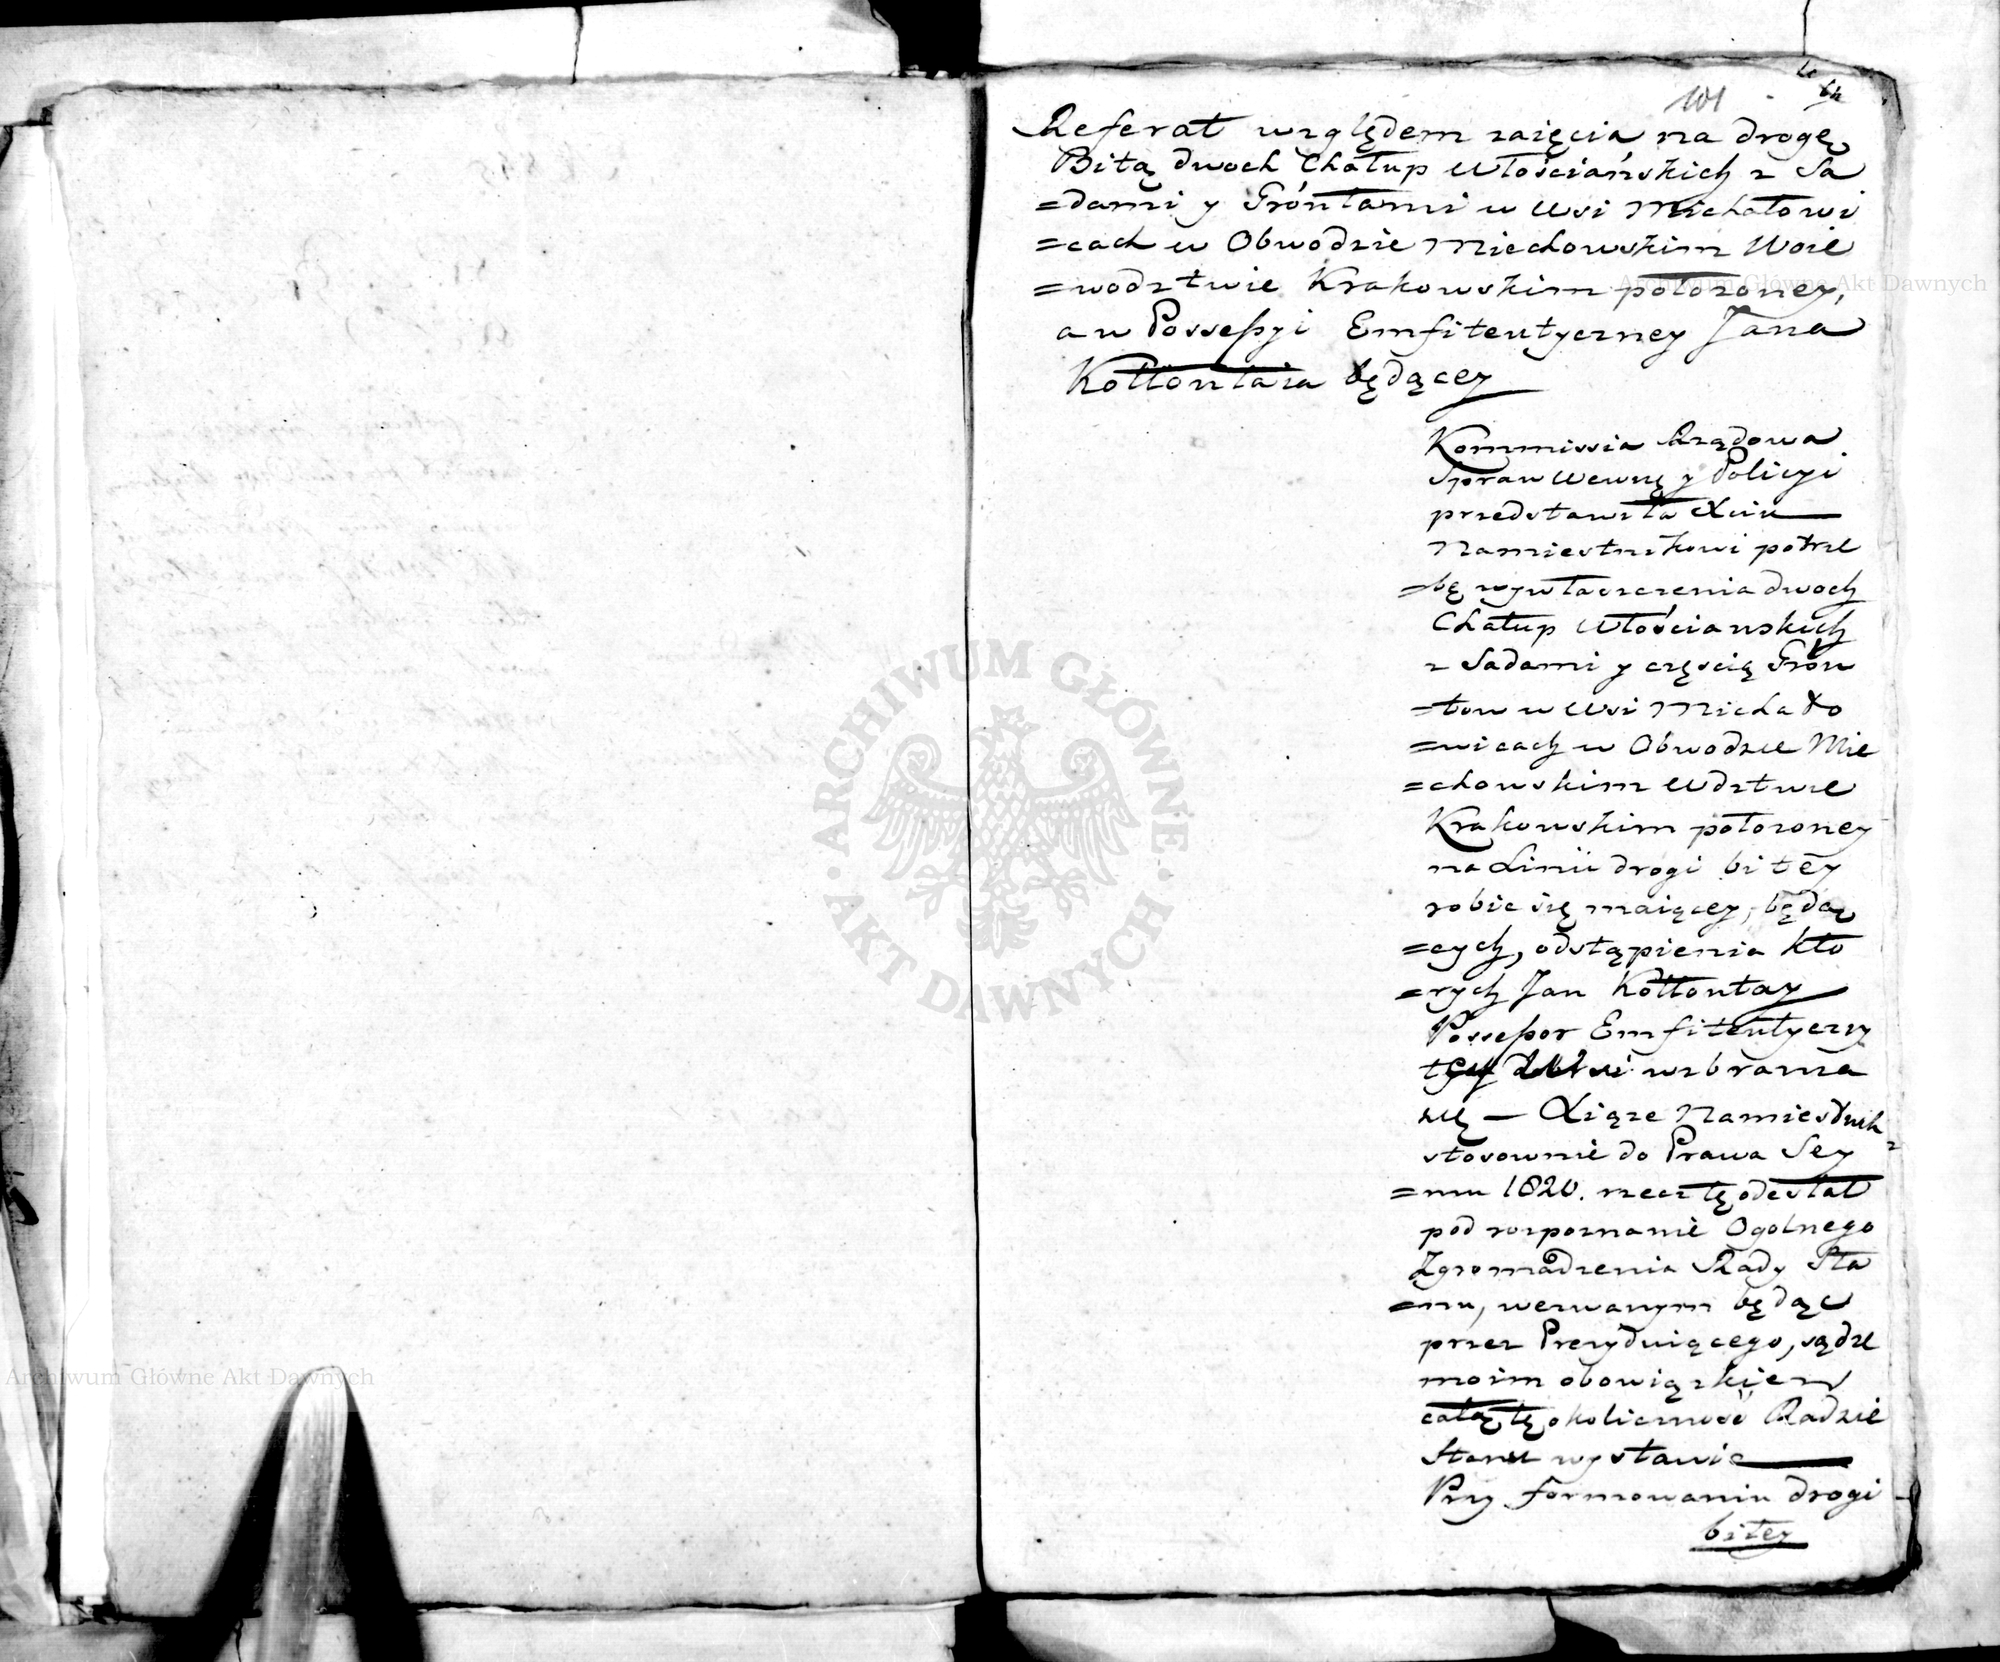 101
Referat względem zaięcia na drogę
Bitą dwoch Chałup Włościańskich z Sa
=dami y Gróntami w Wsi Michałowi
=cach w Obwodzie Miechowskim Woie
=wodztwie Krakowskim położoney,
a w Possessyi Emfiteutyczney Jana
Kołłontaia będącey
Kommissia Rządowa
Spraw Wewnę y Policyi
przedstawiła Xciu
Namiestnikowi potrze
=bę wywłaszczenia dwoch
Chałup Włościanskich
z Sadami y częścią Grón
=tow w Wsi Michało
=wicach w Obwodzie Mie
=chowskim Wdztwie
Krakowskim położoney
na Linii drogi bitey
robic się maiącey, będą
=cych, odstąpienia kto
=rych Jan Kołłontay
Possessor Emfiteutyczny
tey wsi wzbrania
się — Xiąże Namiestnik
stosownie do Prawa Sey
=mu 1820. rzecz tę odesłał
pod rozpoznanie Ogolnego
Zgromadzenia Rady Sta
=nu, wezwanym będąc
przez Prezyduiącego, sądze
moim obowiązkiem
całą tę okoliczność Radzie
Stanu wystawic
Przy formowaniu drogi
bitey
ARCHIWUM GŁÓWNE
AKT DAWNYCH
Archiwum Główne Akt Dawnych
Archiwum Główne Akt Dawnych